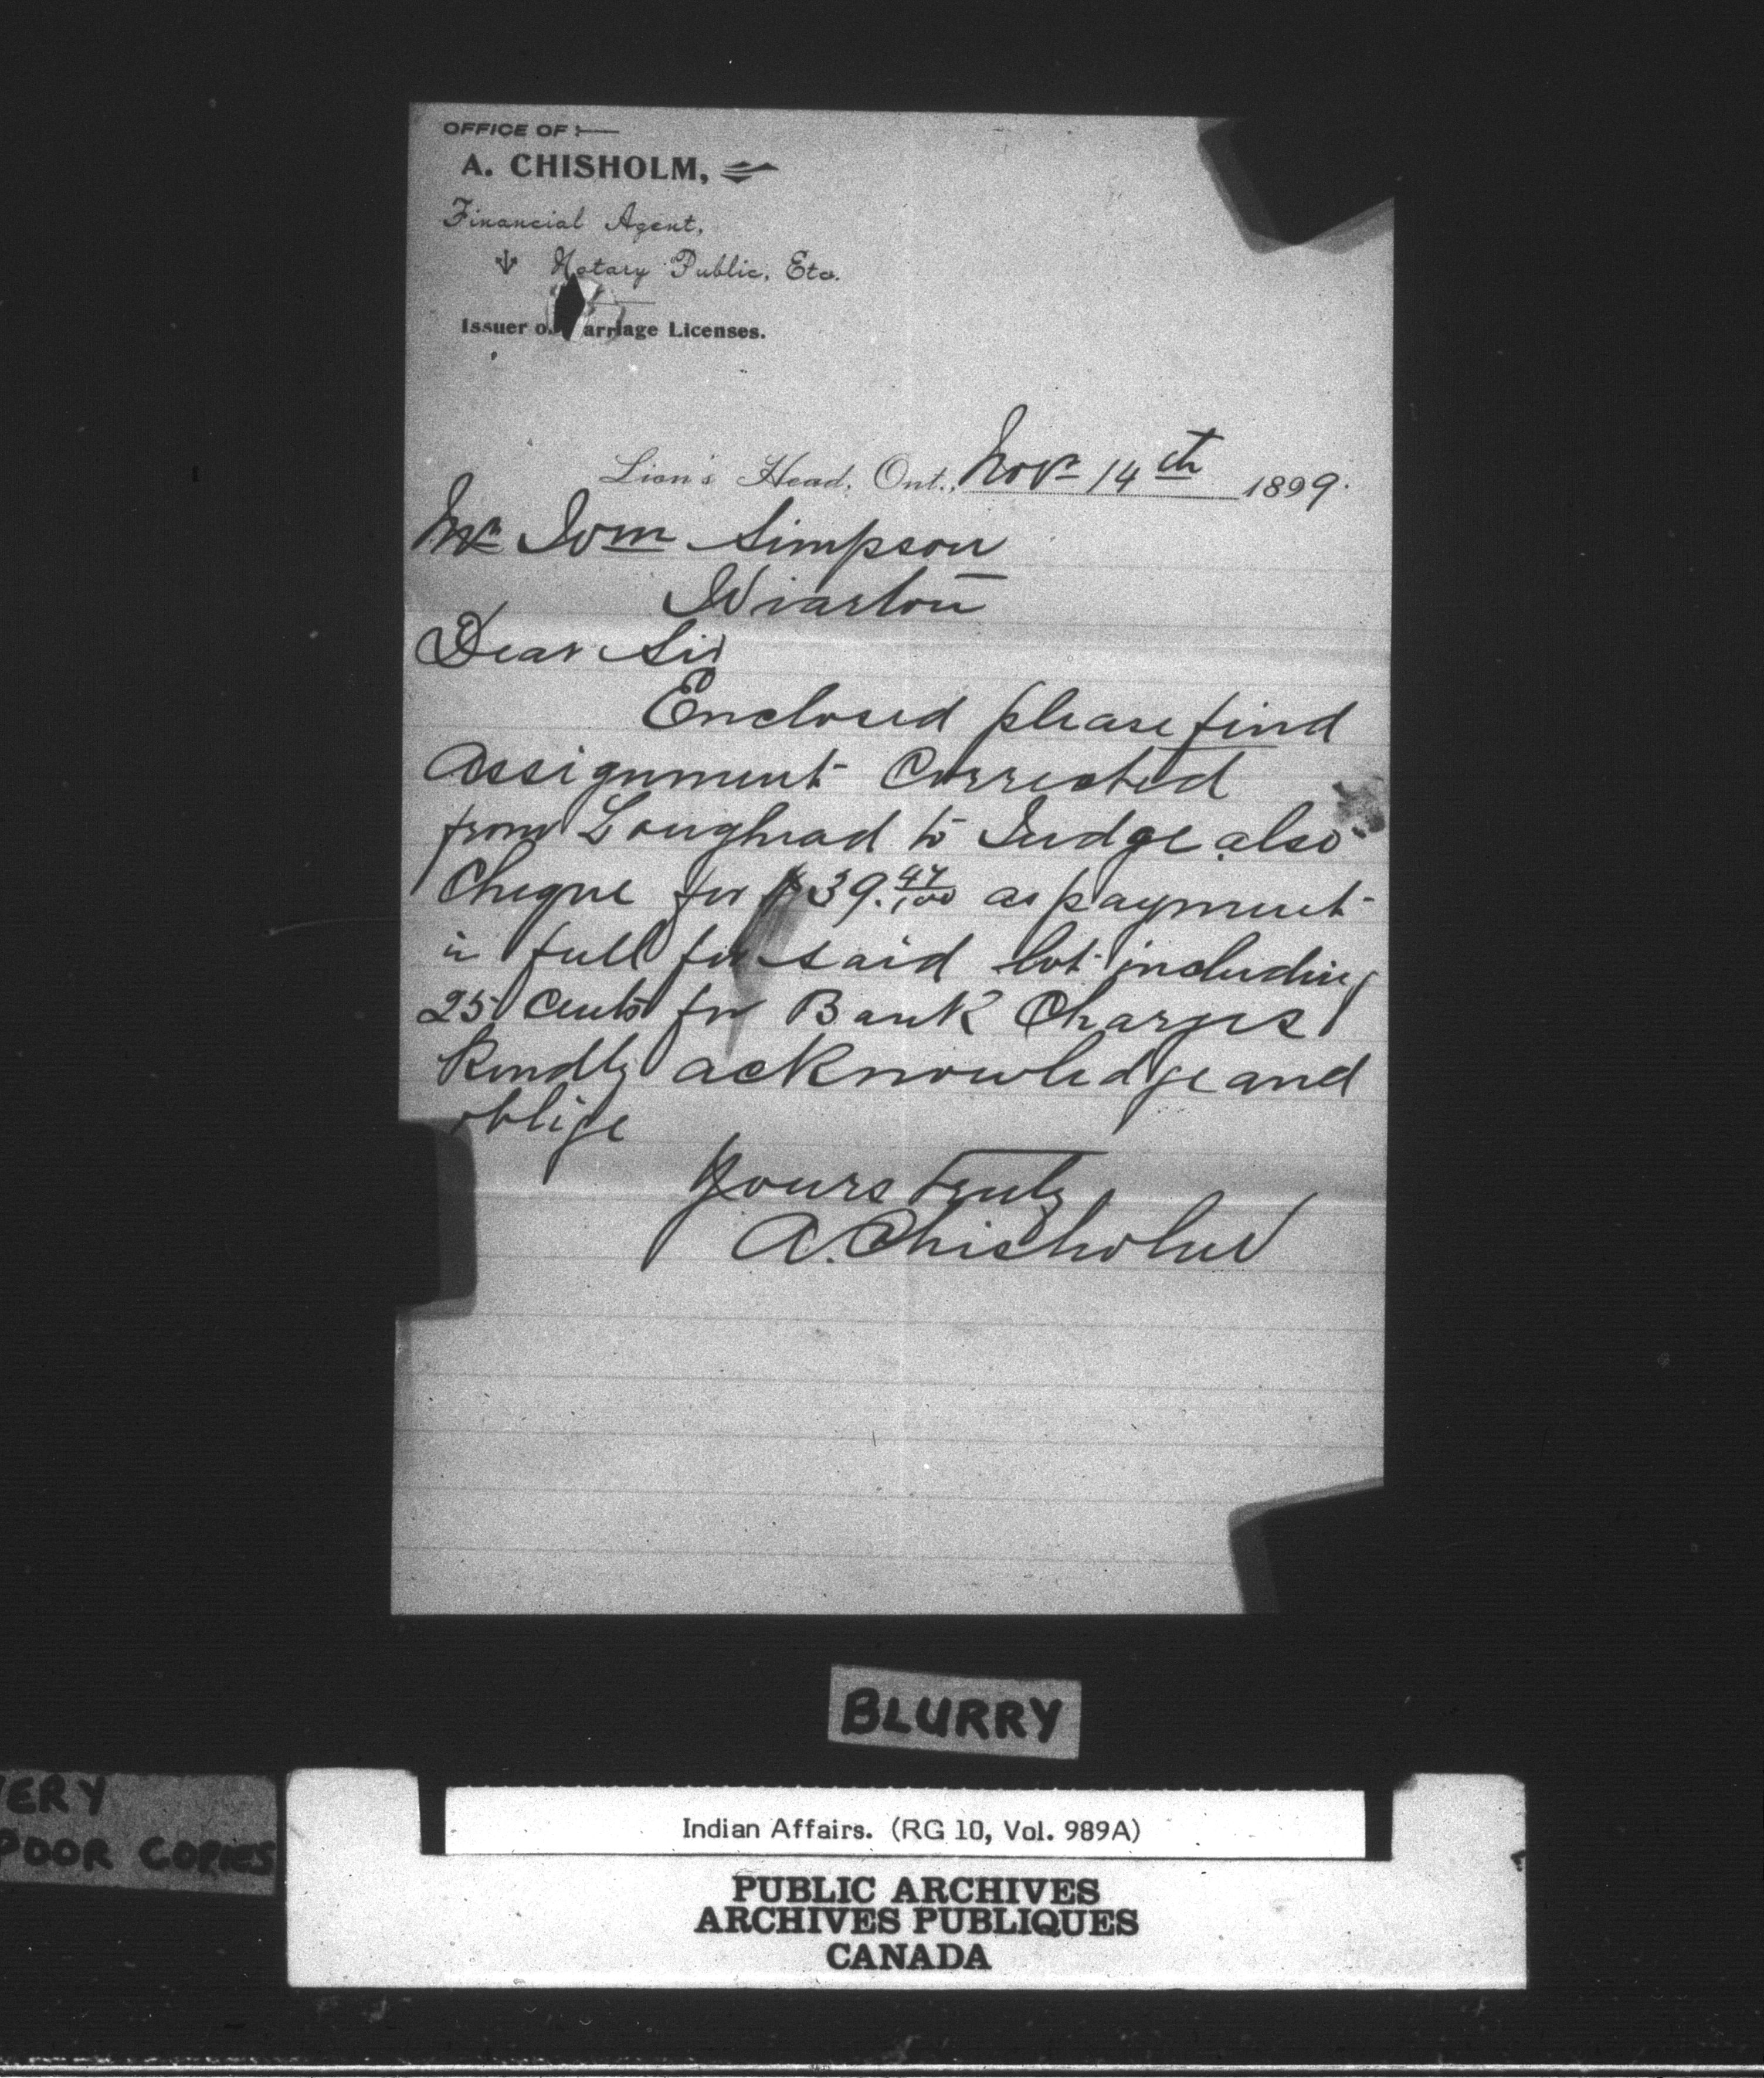 OFFICE OF :—
A. CHISHOLM,
Financial Agent,
Notary Public, Etc.
Issuer o arriage Licenses.
Lion's Head, Ont., Nov 14th 1899.
Mr Wm Simpson
Wiarton
Dear Sir
Enclosed please find
assignment Corrected
from Loughead to Judge also
Cheque for $39.47/100 as payment
in full for said lot including
25 Cents for Bank Charges
Kindly acknowledge and
oblige
Yours truly
A. Chisholm
BLURRY
ERY
POOR COPIES
Indian Affairs. (RG 10, Vol. 989A)
PUBLIC ARCHIVES
ARCHIVES PUBLIQUES
CANADA